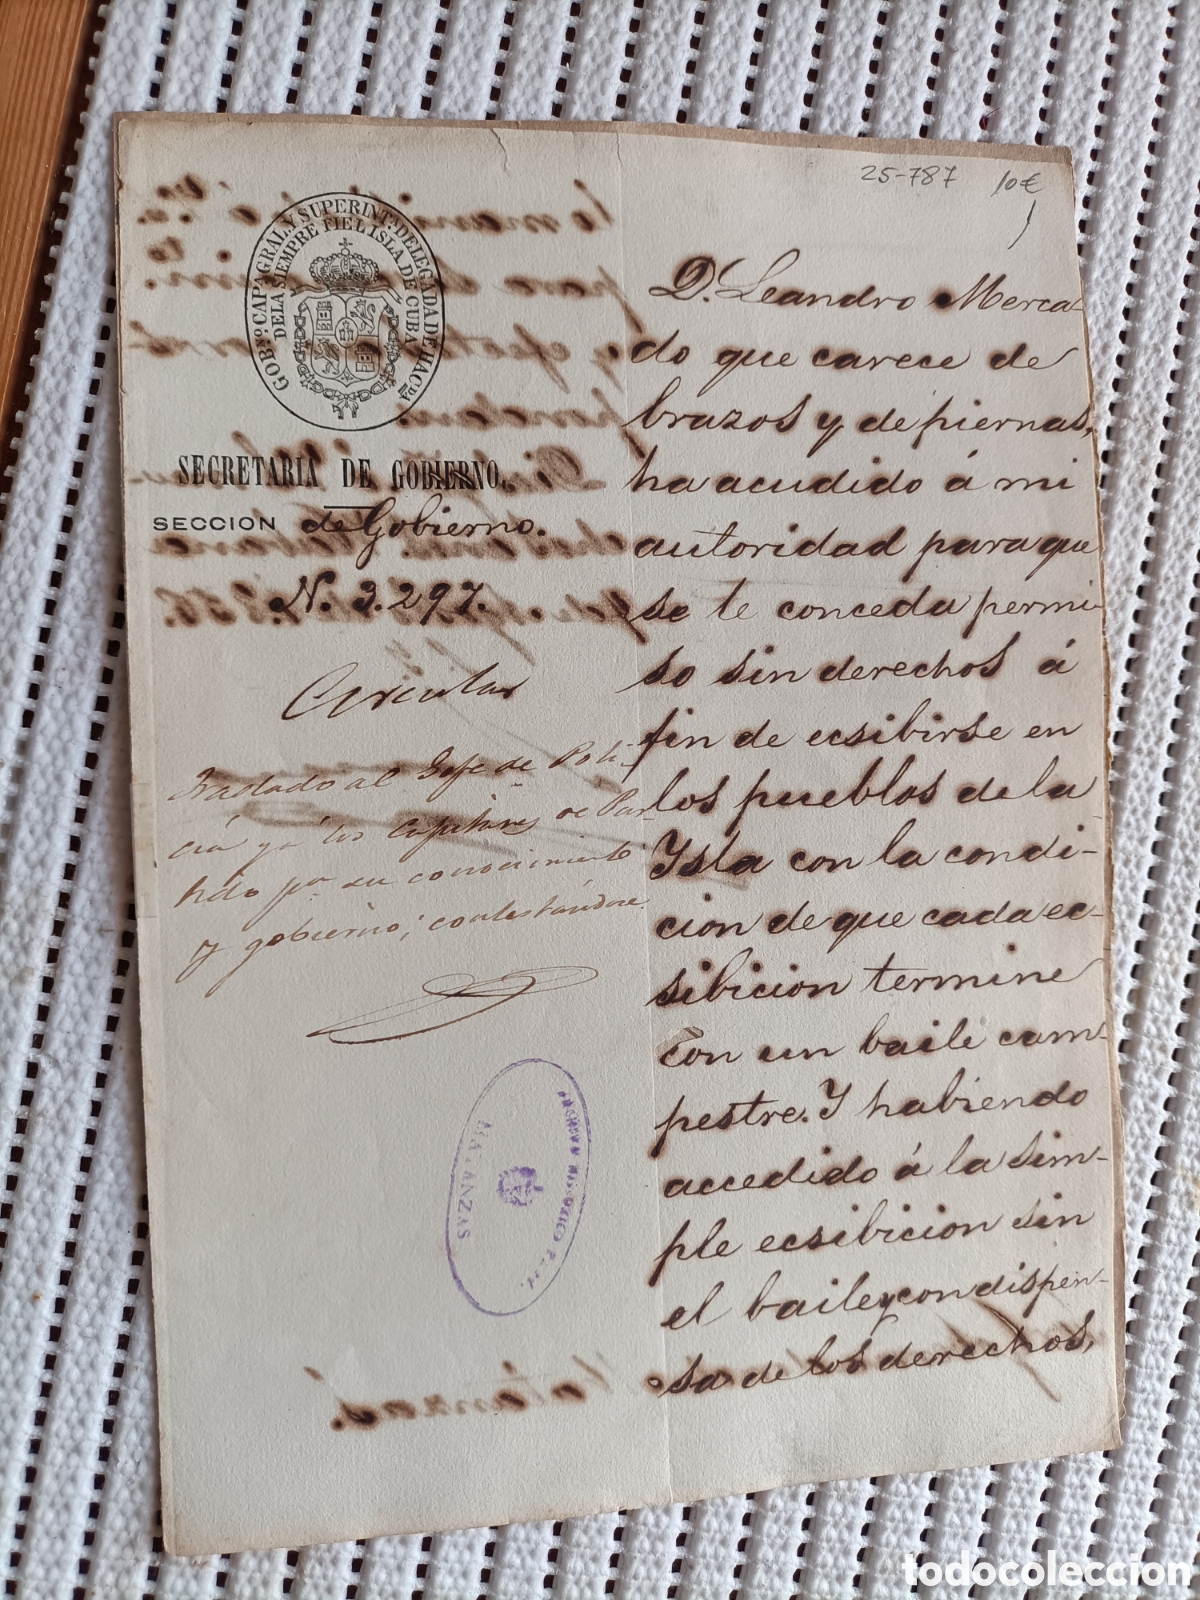 25-787 10€
GOBNO. CAPA. GRAL. Y SUPERINTA. DELEGADA DE HACDA
DE LA SIEMPRE FIEL ISLA DE CUBA
SECRETARIA DE GOBIERNO.
SECCION de Gobierno.
N. 3.297.
Circular
Trasladado al Gefe de Poli-
cía y á los Capitanes de Par-
tido pa. su conocimiento
y gobierno; contestándose.
MATANZAS
D. Leandro Merca-
do que carece de
brazos y de piernas,
ha acudido á mi
autoridad para que
se le conceda permi-
so sin derechos á
fin de ecsibirse en
los pueblos de la
Ysla con la condi-
cion de que cada ec-
sibicion termine
con un baile cam-
pestre. Y habiendo
accedido á la sim-
ple ecsibicion sin
el baile y con dispen-
sa de los derechos,
todocoleccion